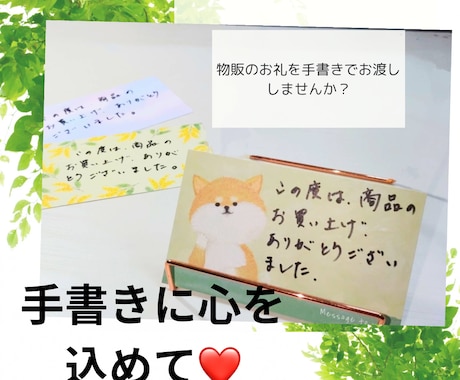 物販のお礼を手書きでお渡し
しませんか？
この度は、商品の
お買い上げ、ありがとう
ございました。
この度は、商品の
お買い上げ、ありが
とうございました。
この度は、商品の
お買い上げ、
ありがとうござい
ました。
Message
手書きに心を
込めて❤️